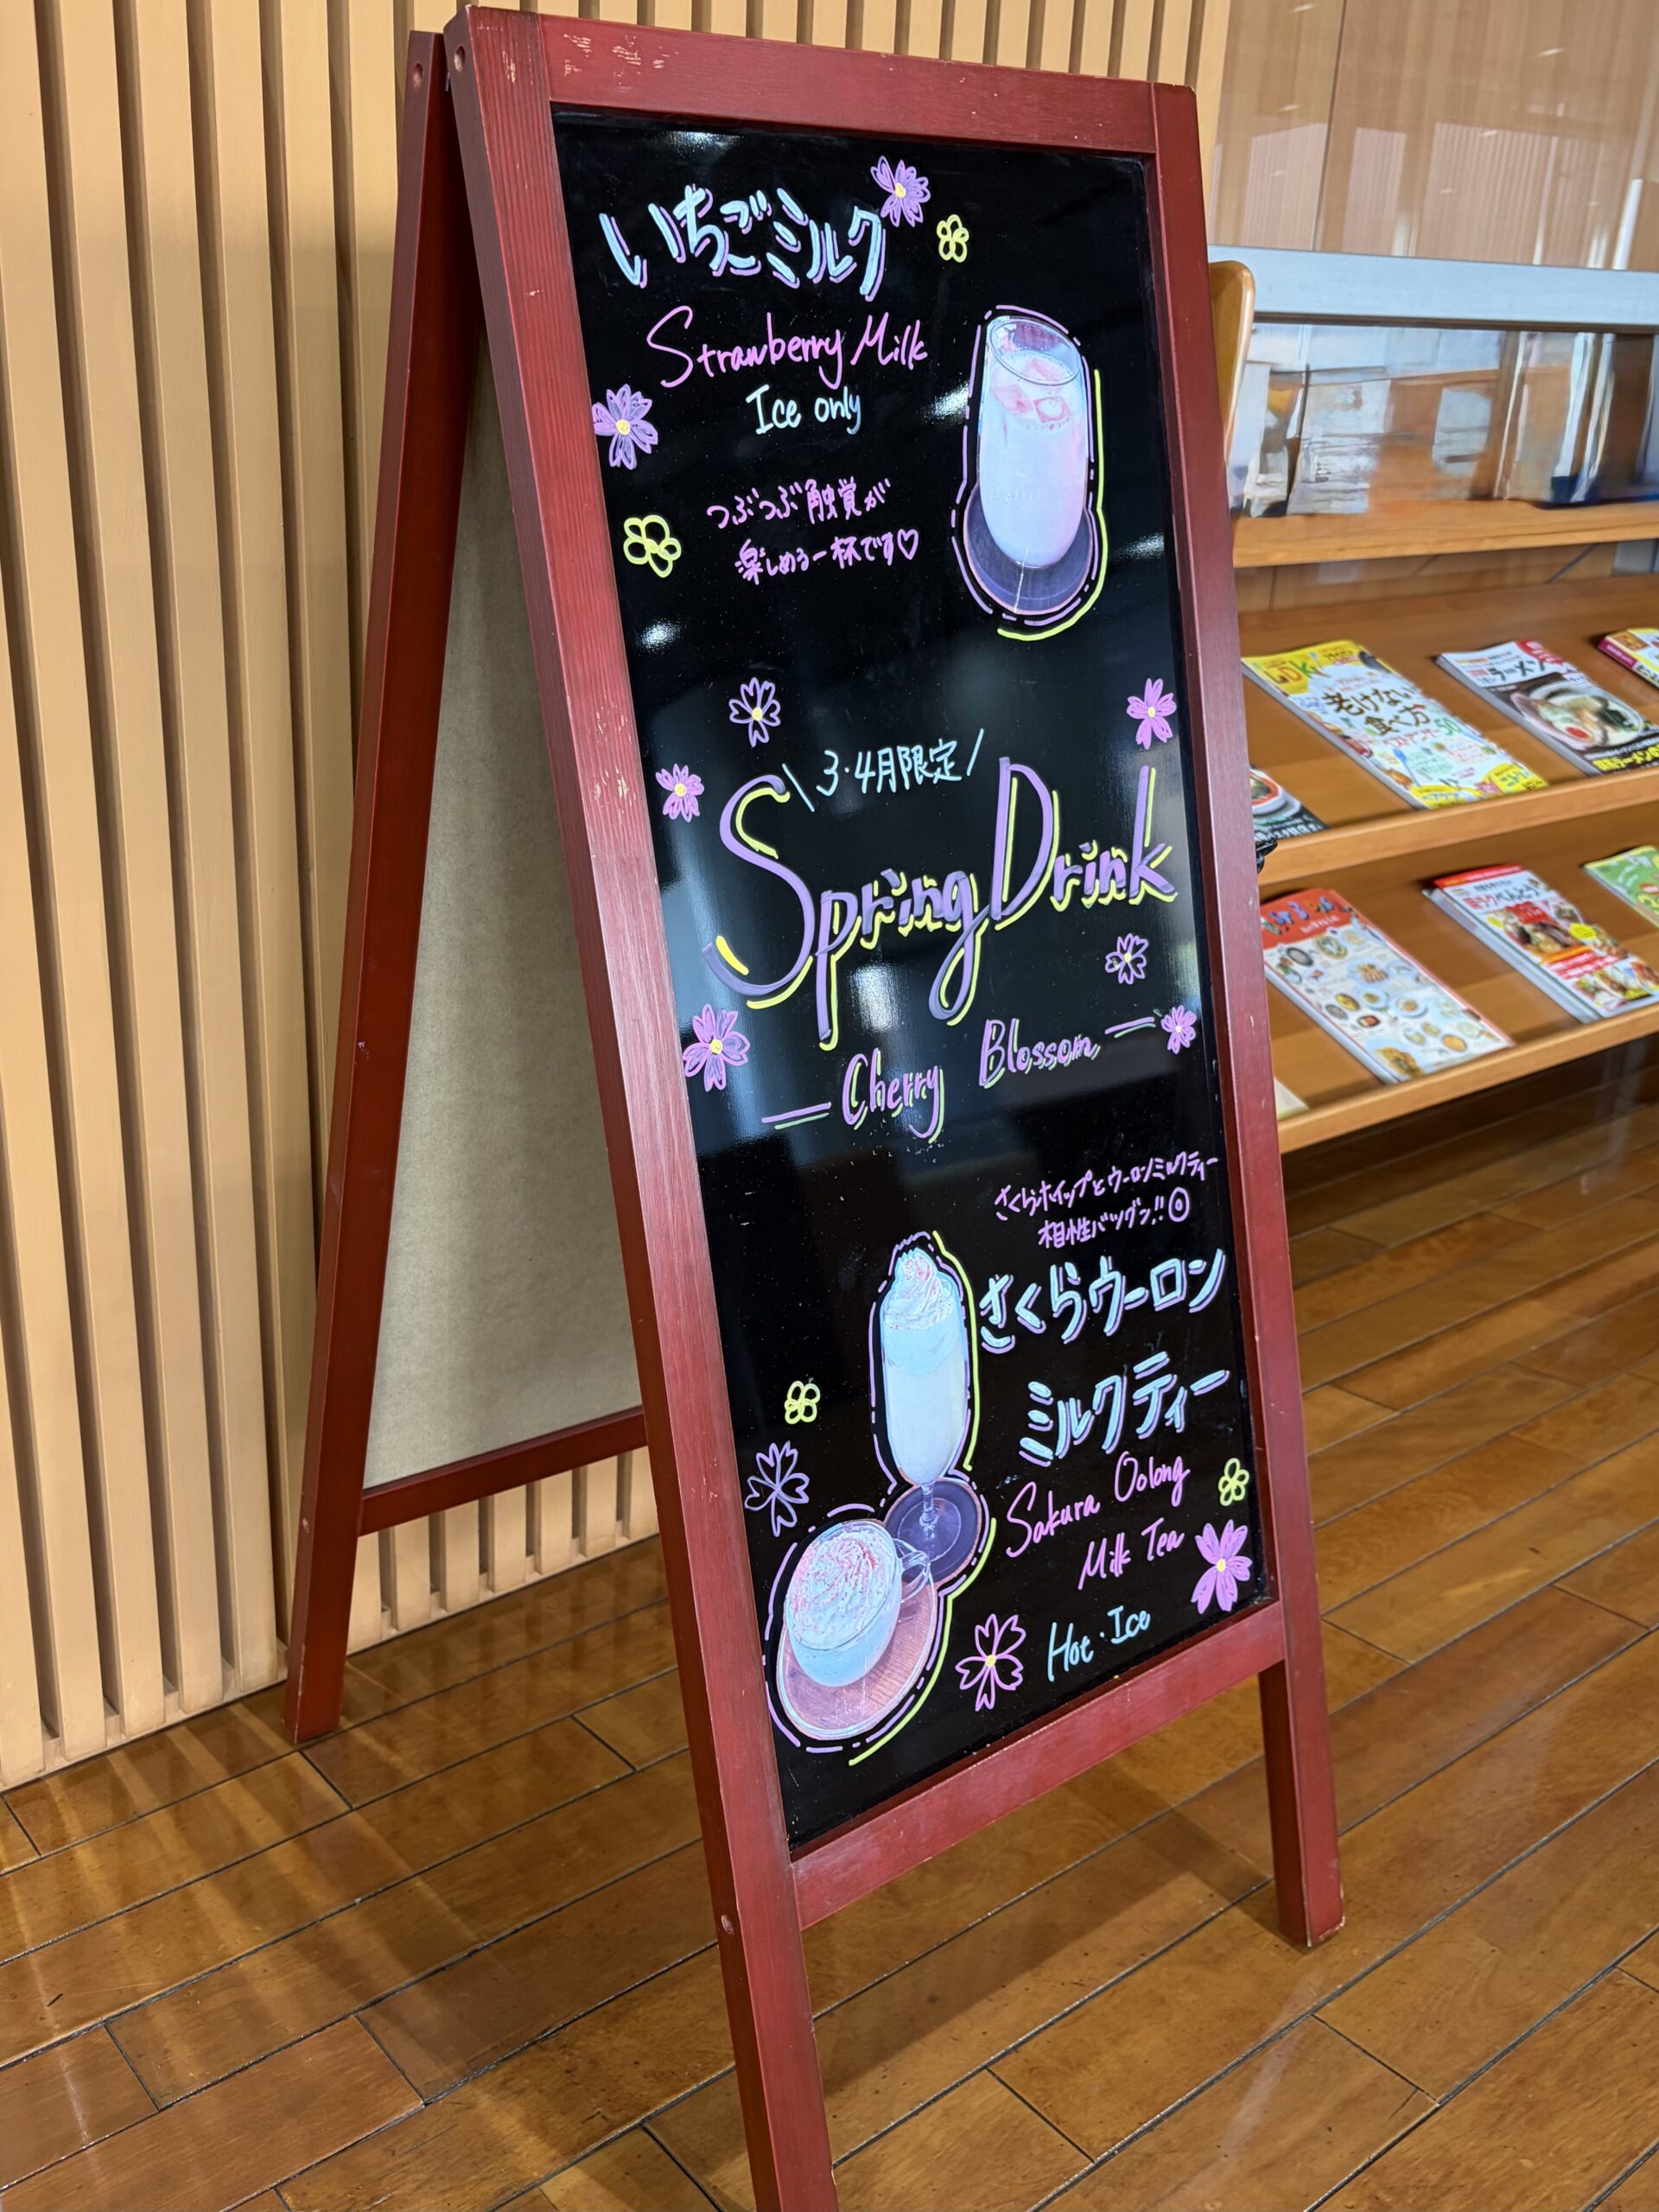 いちごミルク
Strawberry Milk
Ice only
つぶつぶ触覚が
楽しめる一杯です♡
\3・4月限定/
Spring Drink
Cherry Blossom
さくらホイップとウーロンミルクティー
相性バツグン!!◎
さくらウーロン
ミルクティー
Sakura Oolong
Milk Tea
Hot・Ice
LDK
老けない
食べ方
ラーメン